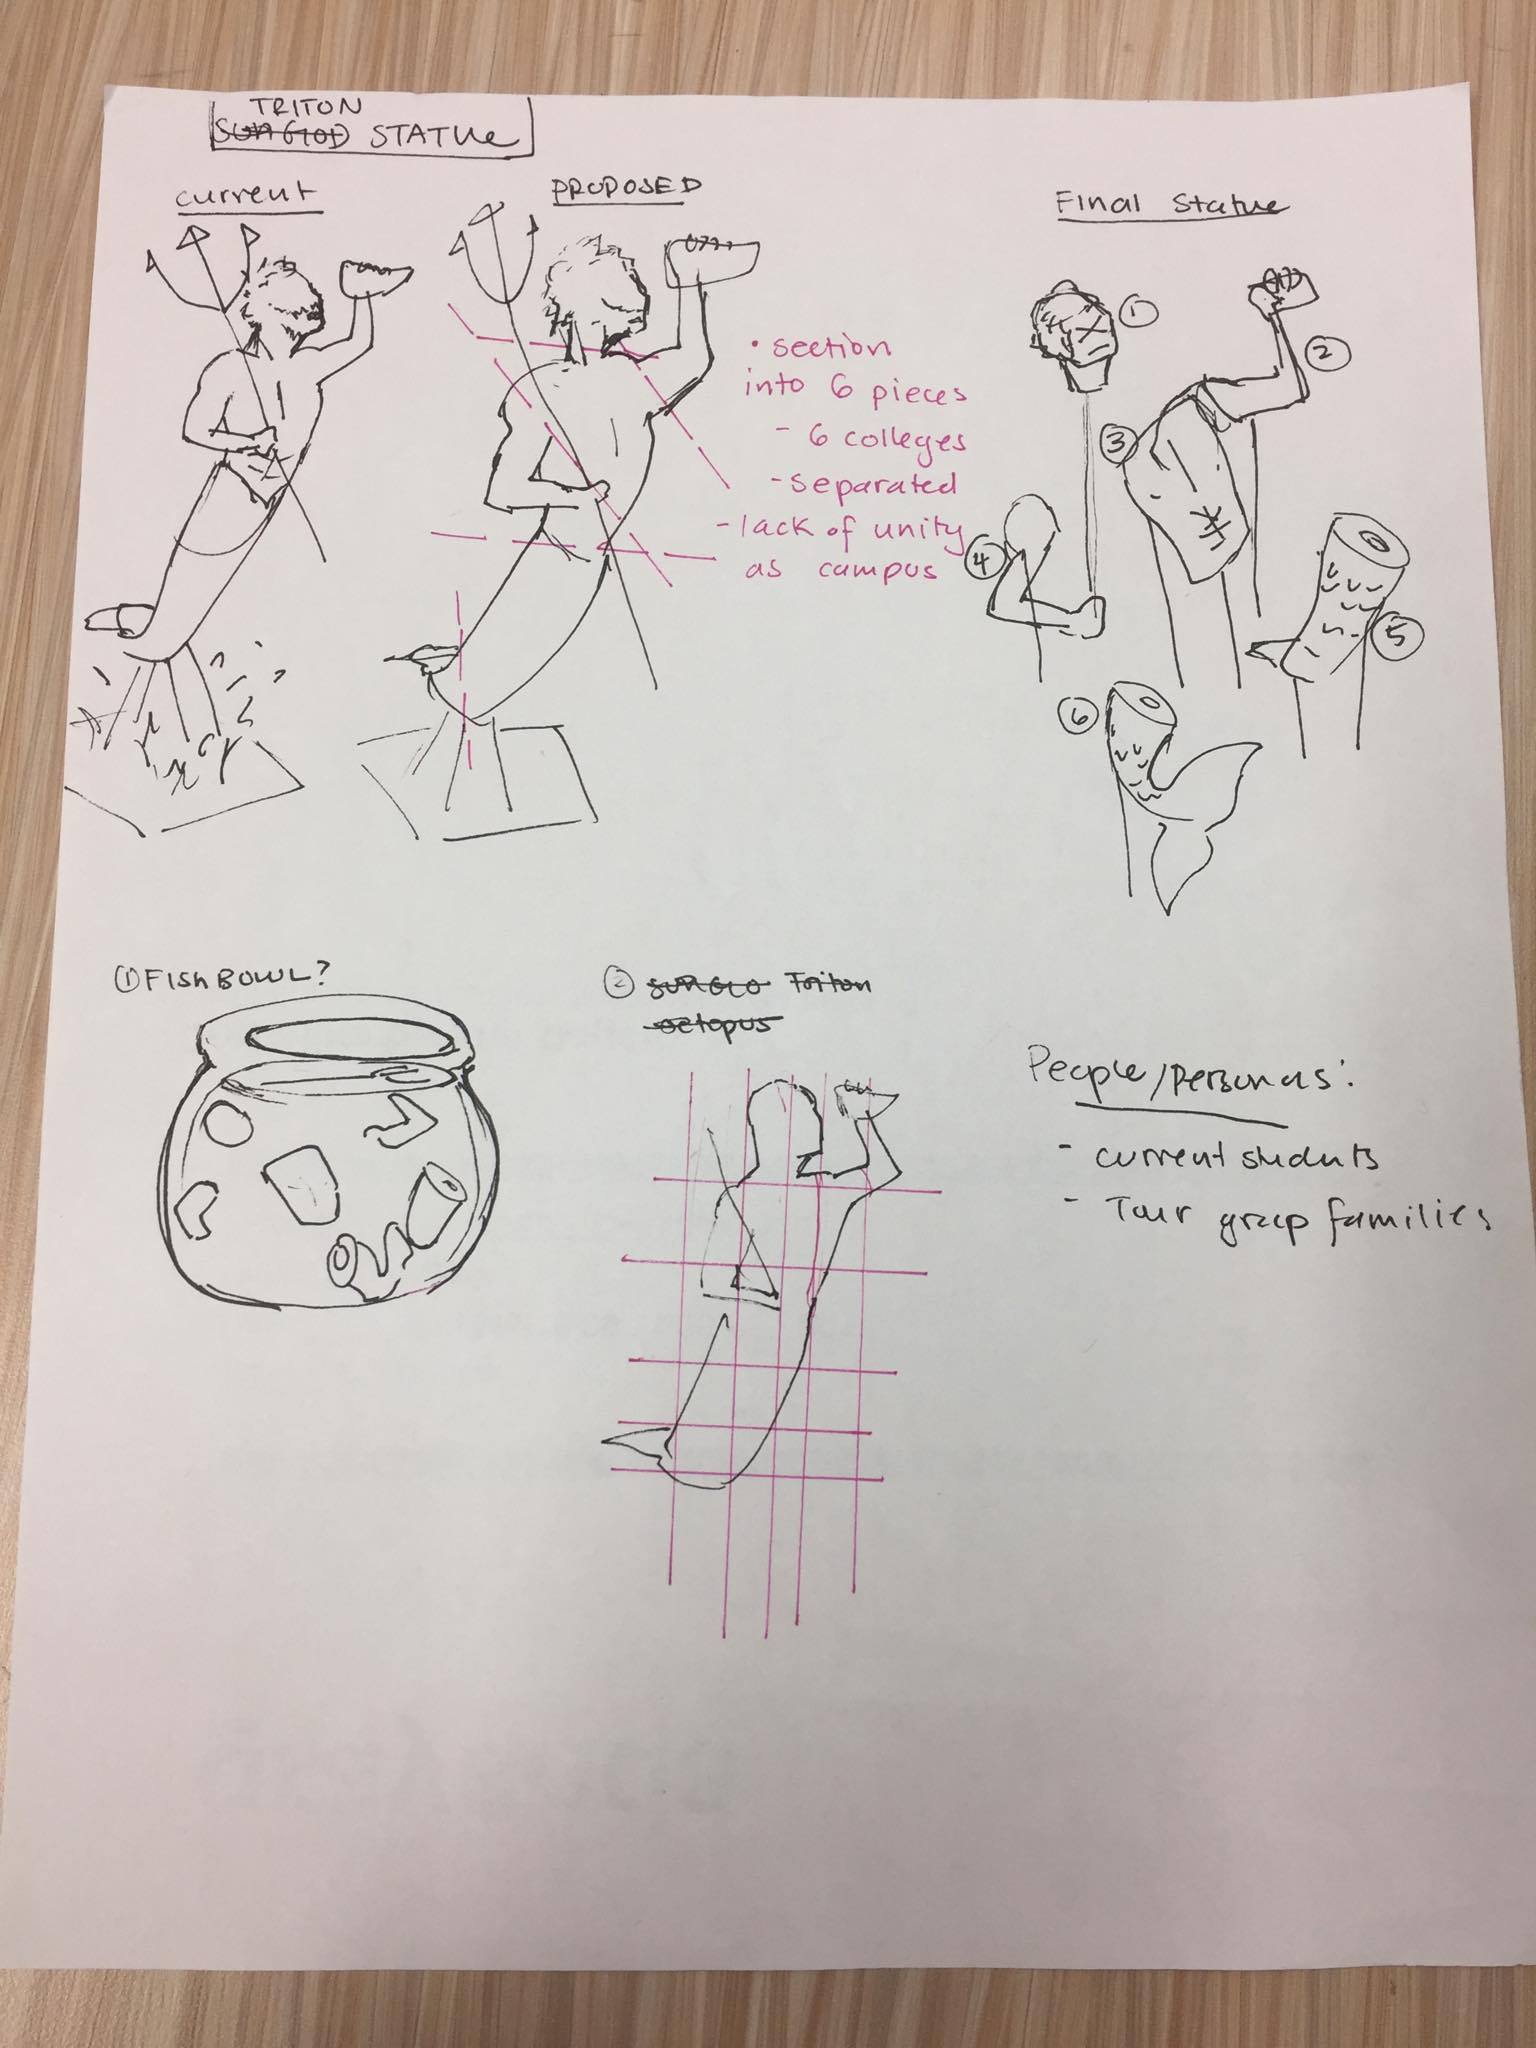 TRITON
SUN GOD STATUE
current
PROPOSED
Final Statue
• section
into 6 pieces
- 6 colleges
- separated
- lack of unity
as campus
①
②
③
④
⑤
⑥
① FISHBOWL?
② SUN GOD Triton
octopus
People/personas:
- current students
- Tour group families